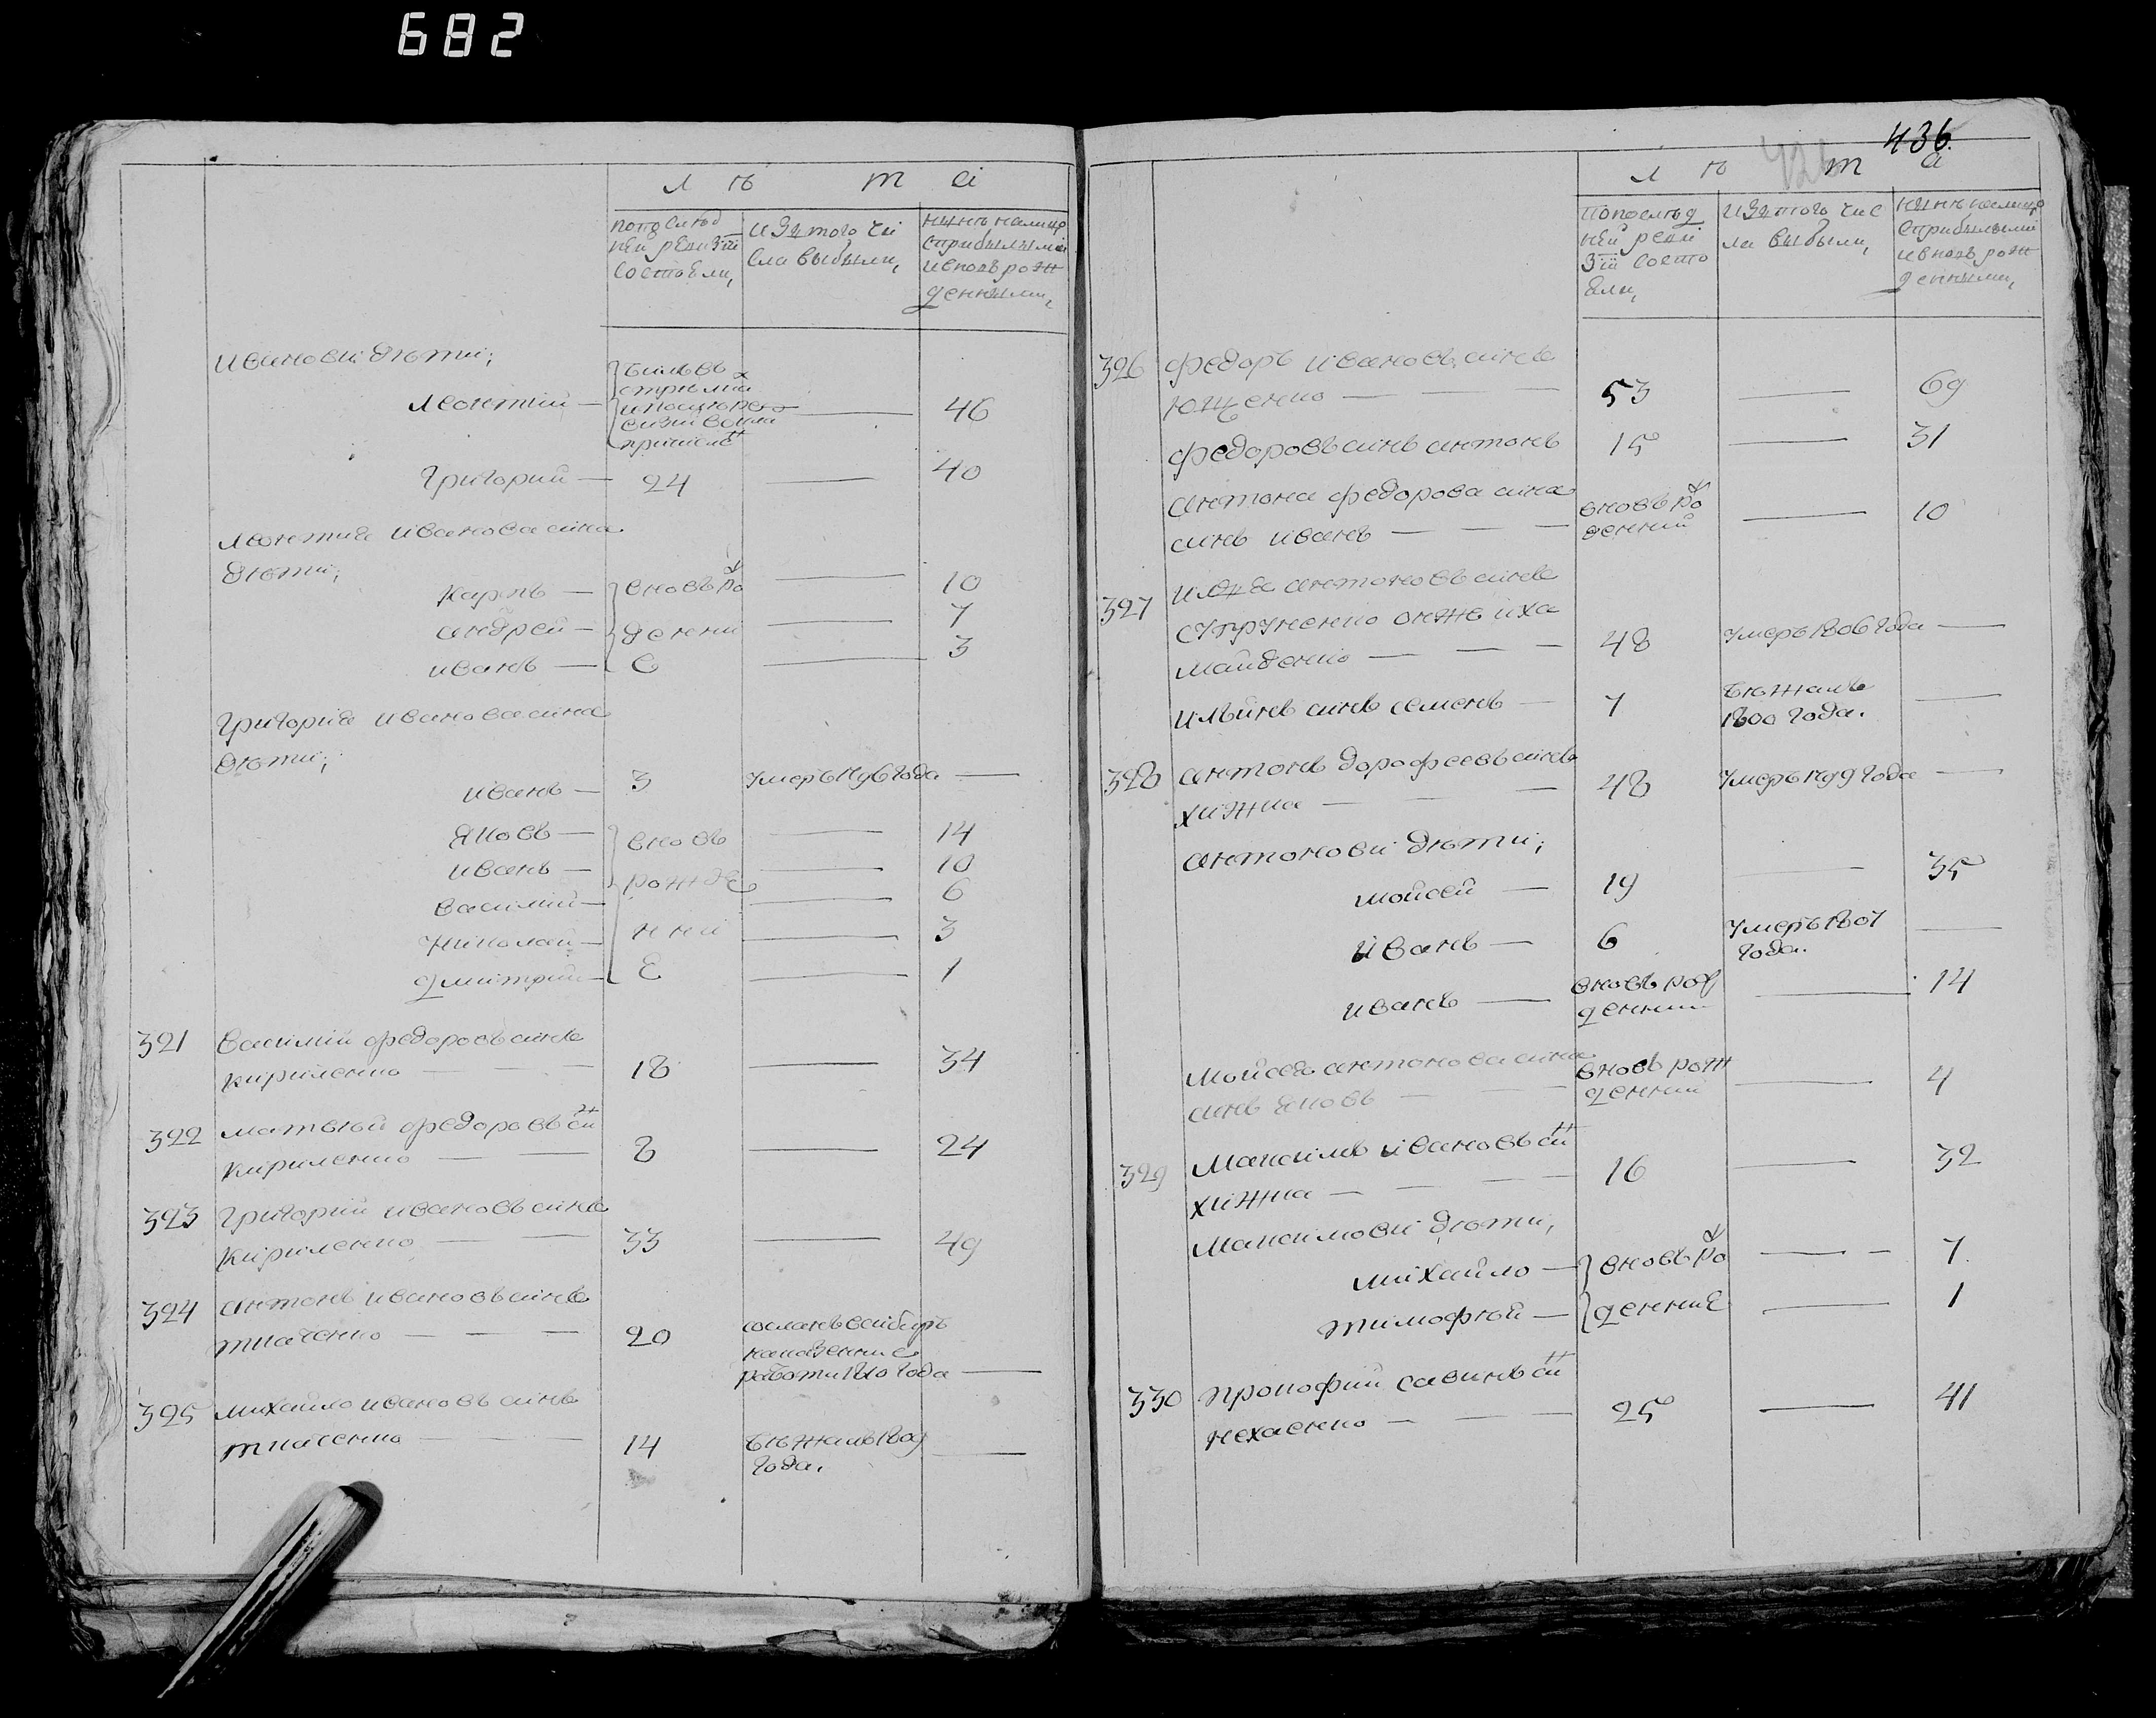 682
лѣта
По послѣд
ней ревизіи
состояли,
Изъ того чи
сла выбыли,
Нынѣ налицо
с прибылыми
и вновь рож
денными,
Ивановы дѣти;
Леонтий — 46
Григорий — 24 — 40
Леонтия Иванова сина
дѣти;
Карпъ — вновь ро — 10
Андрей — денни — 7
Иванъ — е — 3
Григория Иванова сина
дѣти;
Иванъ — 3 умеръ 1796 года —
Яковъ — вновь — 14
Иванъ — 10
рожде
Василий — 6
Николай — нни — 3
Дмитрий — е — 1
321 Василий Федоровъ синъ
Кириленко — — 18 — 34
322 Матвѣй Федоровъ си н
Кириленко — — 8 — 24
323 Григорий Ивановъ синъ
Кириленко — — 33 — 49
324 Антонъ Ивановъ синъ
Ткаченко — — — 20 сосланъ в Сибирь
на казенние
работи 1810 года —
325 Михайло Ивановъ синъ
Ткаченко — — — 14 бѣжалъ 1809 —
года.
436.
лѣта
По послѣд
ней реви
зіи состо
яли,
Изъ того чис
ла выбыли,
Нынѣ налицо
с прибылыми
и вновь рож
денными,
326 Федоръ Ивановъ синъ
Ющенко — — — 53 — 69
Федоровъ синъ Антонъ 15 — 31
Антона Федорова сина вновь рож — 10
синъ Иванъ — — — денний
327 Илья Антоновъ синъ
Супруненко онже и Ха
майденко — — — 48 умеръ 1806 года —
Ильинъ синъ Семенъ — 7 бѣжалъ —
1800 года.
328 Антонъ Дорофеевъ синъ
Хижна — — — 48 умеръ 1799 года —
Антонови дѣти;
Мойсей — 19 — 35
Иванъ — 6 умеръ 1807 —
года.
Иванъ — вновь рож — 14
денний
Мойсея Антонова сина вновь рож — 4
синъ Яковъ — — денний
329 Максимъ Ивановъ си н
Хижна — — — 16 — 32
Максимови дѣти;
Михайло — вновь ро — — 7
Тимофѣй — денние — 1
330 Прокофий Савинъ си н
Нехаенко — — — 25 — 41